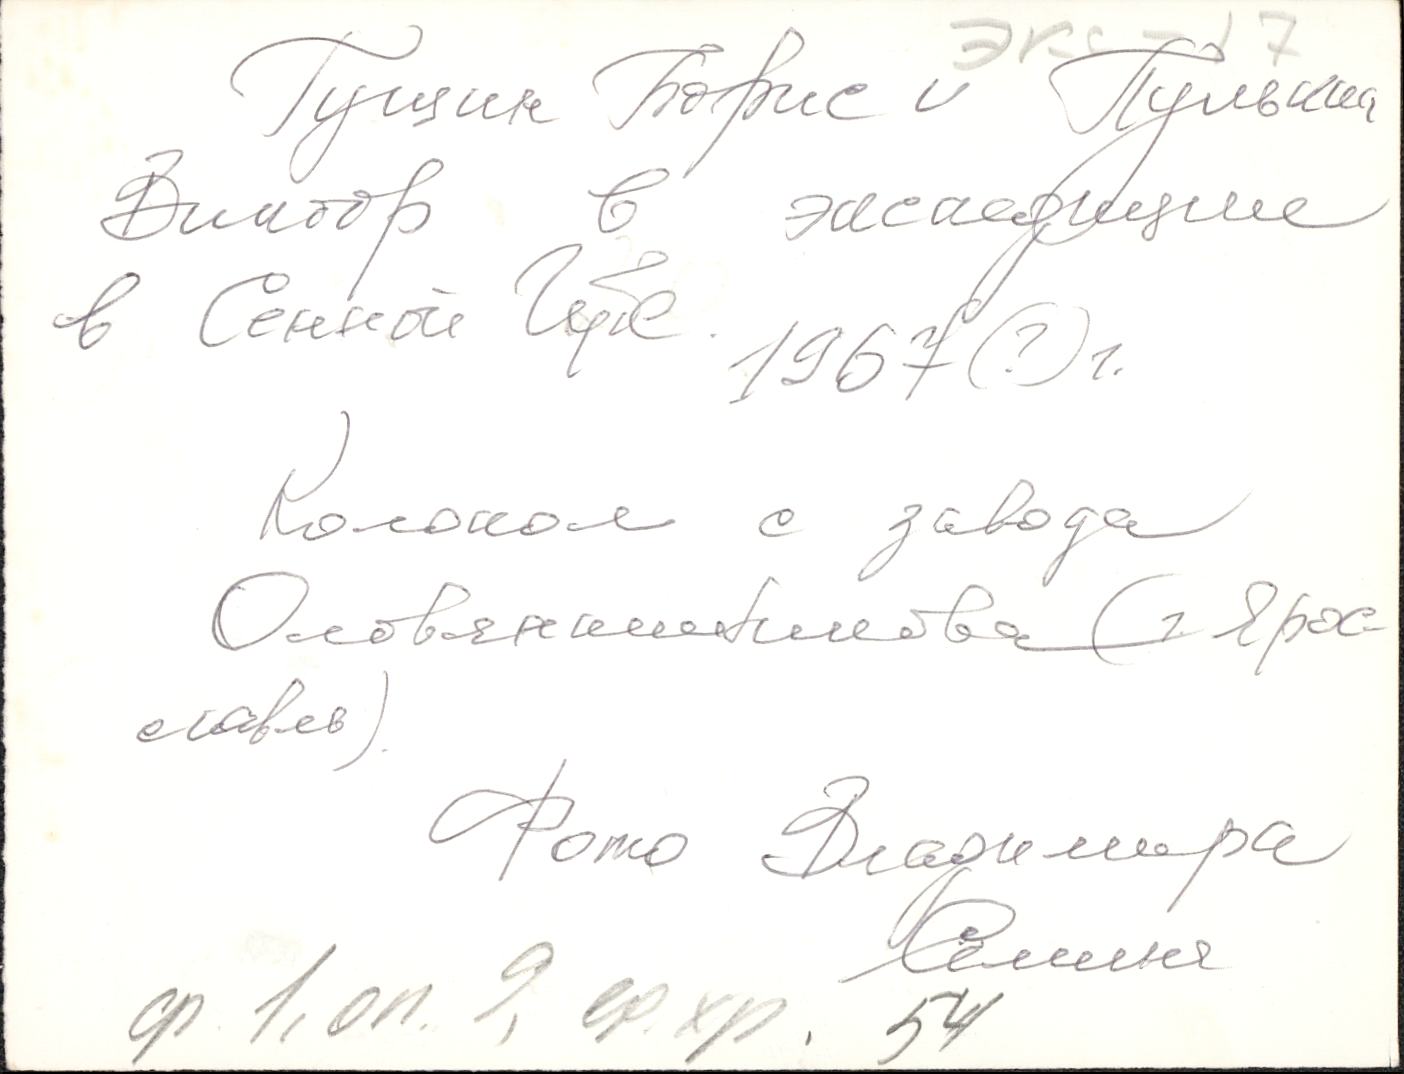 экс-17
Гущин Борис и Пулькин
Виктор в экспедиции
в Сенной Губе.
1967(?) г.
Колокол с завода
Оловянишникова (г. Ярос-
славль).
Фото Владимира
Семина
ф. 1, оп. 2, ед. хр. 54